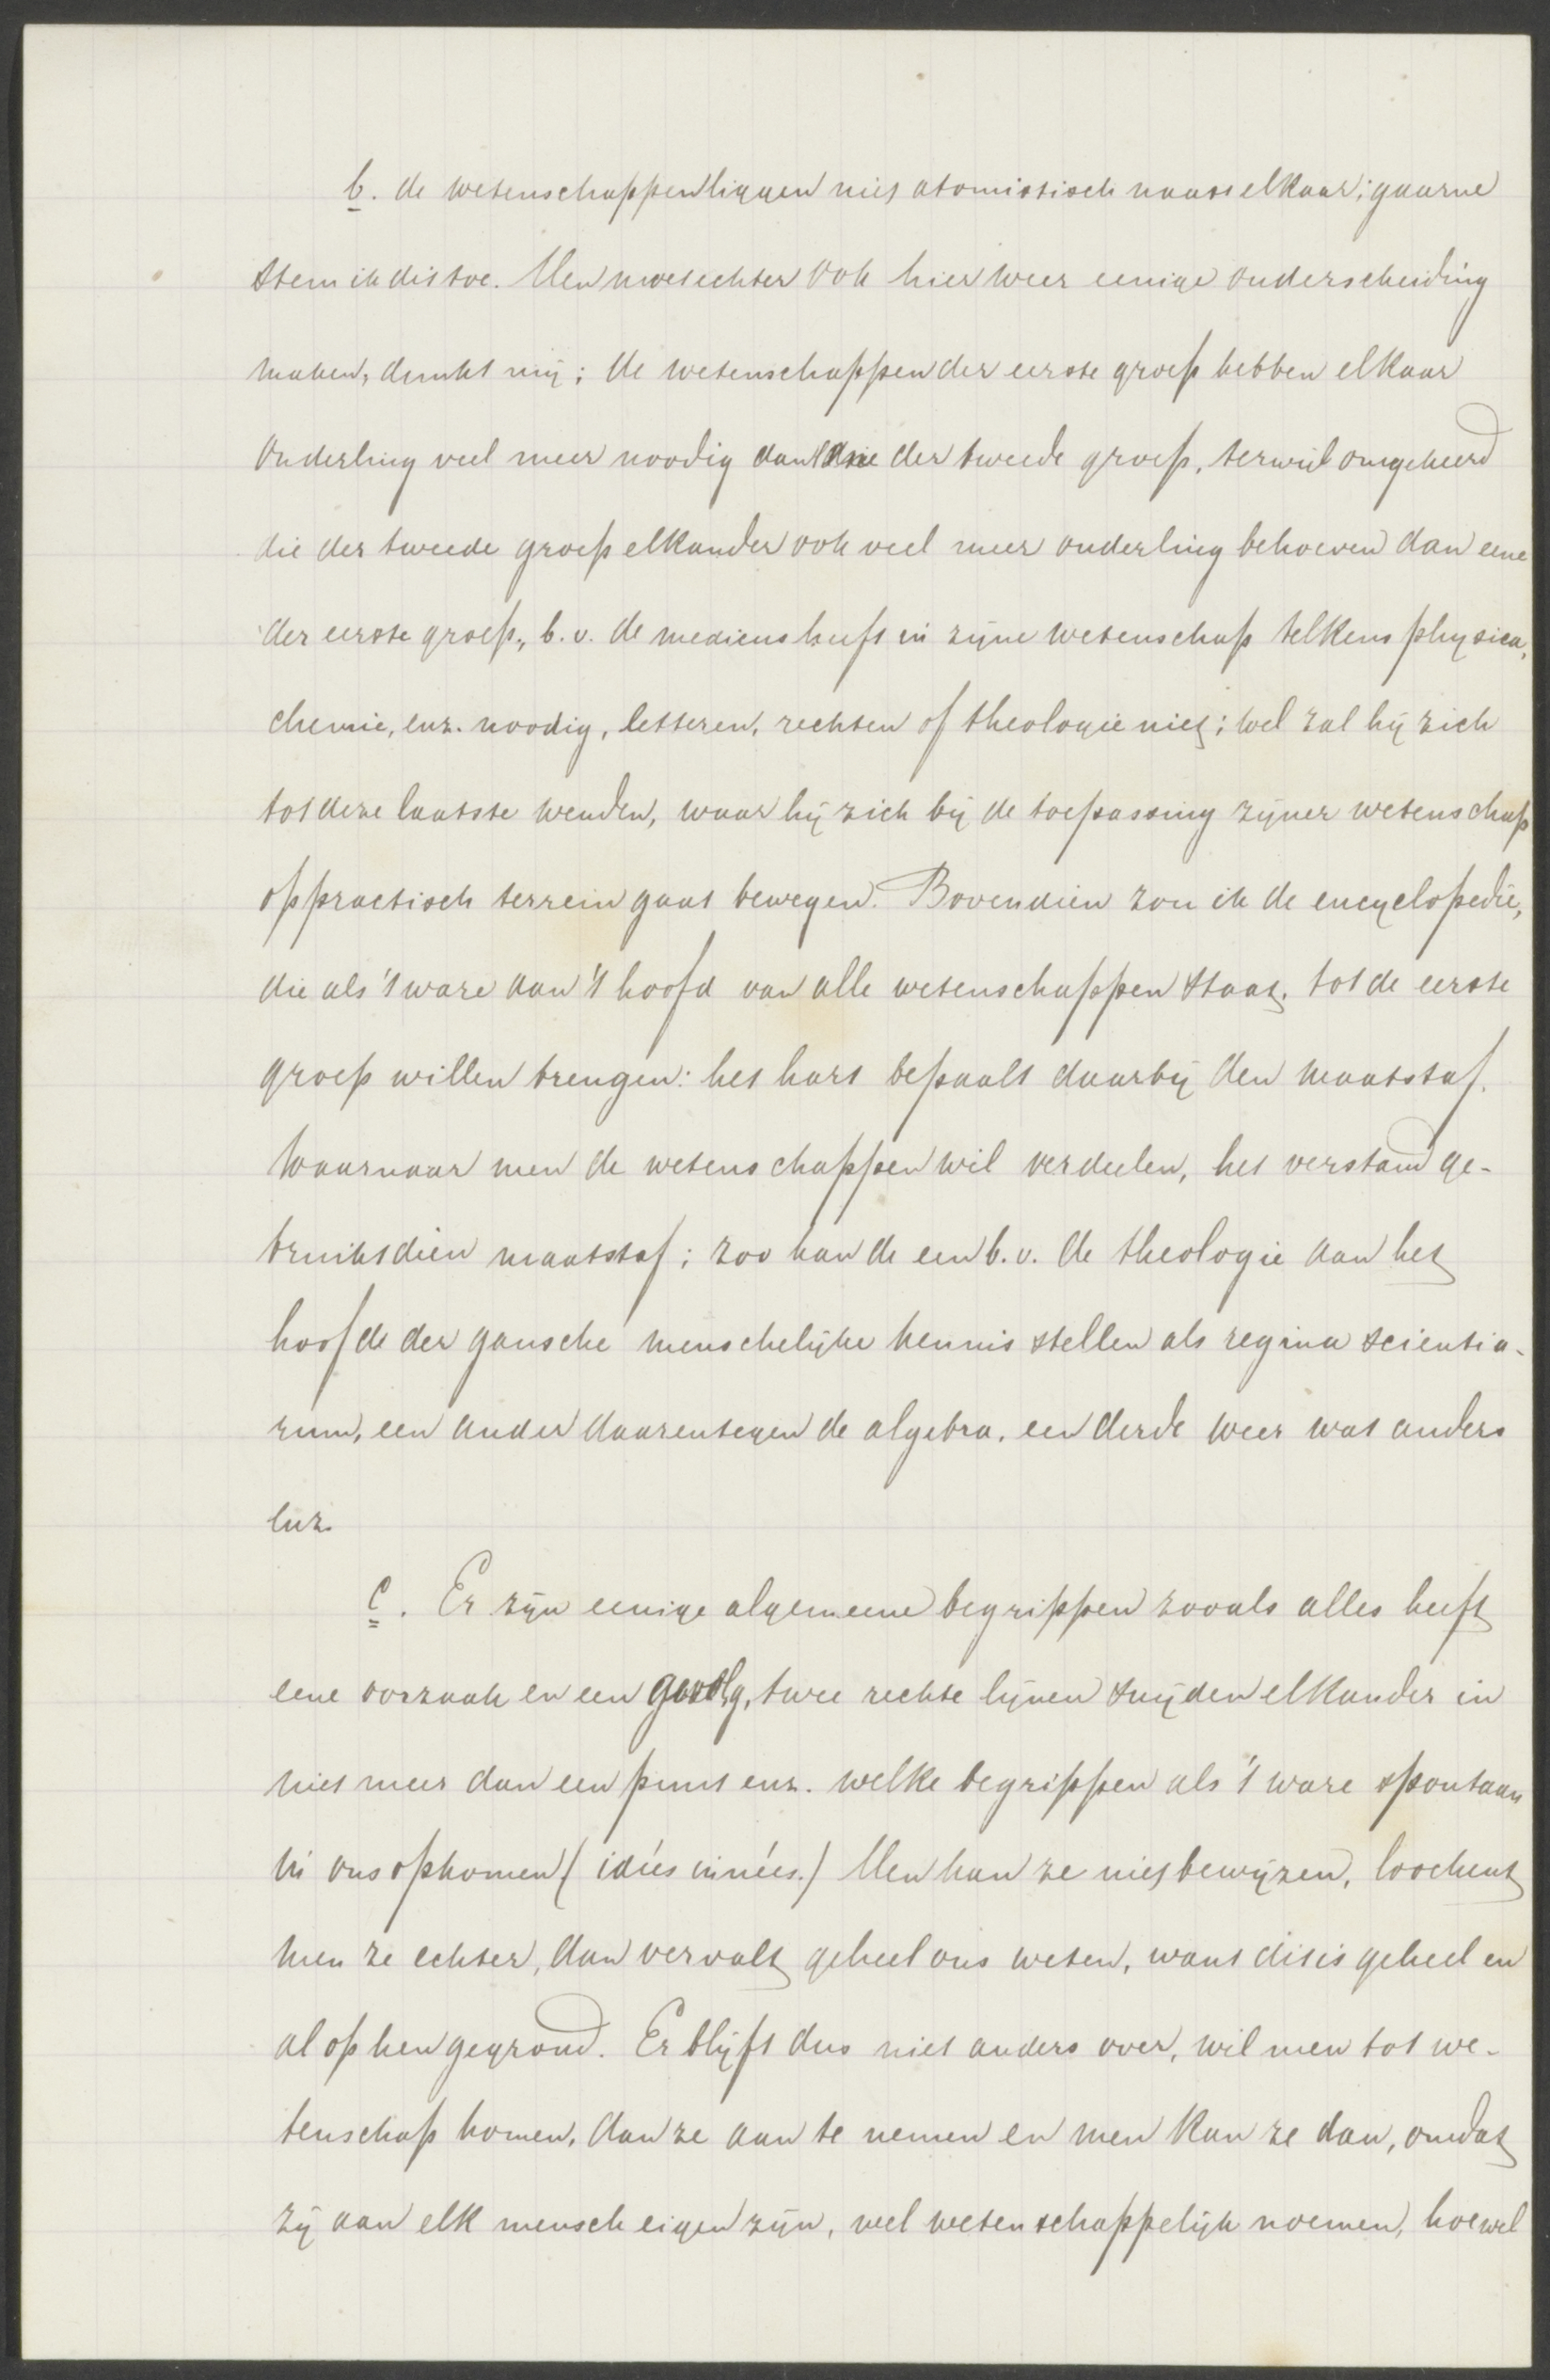 b. de wetenschappen liggen niet atomistisch naast elkaar; gaarne
stem ik dit toe. Men moet echter ook hier weer eenige onderscheiding
maken, dunkt mij; de wetenschappen der eerste groep hebben elkaar
onderling veel meer noodig dan die der tweede groep, terwijl omgekeerd
die der tweede groep elkander ook veel meer onderling behoeven dan eene
der eerste groep, b.v. de medicus heeft in zijne wetenschap telkens physica,
chemie, enz. noodig, letteren, rechten of theologie niet; wel zal hij zich
tot deze laatste wenden, waar hij zich bij de toepassing zijner wetenschap
op practisch terrein gaat bewegen. Bovendien zou ik de encyclopedie,
die als 't ware aan 't hoofd van alle wetenschappen staat, tot de eerste
groep willen brengen: het hart bepaalt daarbij den maatstaf,
waarnaar men de wetenschappen wil verdeelen, het verstand ge-
bruikt dien maatstaf; zoo kan de een b.v. de theologie aan het
hoofd der gansche menschelijke kennis stellen als regina scientia-
rum, een ander daarentegen de algebra, een derde weer wat anders
enz.
c. Er zijn eenige algemeene begrippen zooals alles heeft
eene oorzaak en een gevolg, twee rechte lijnen snijden elkander in
niet meer dan een punt enz. welke begrippen als 't ware spontaan
in ons opkomen (idées innées.) Men kan ze niet bewijzen, loochent
men ze echter, dan vervalt geheel ons weten, want dit is geheel en
al op hen gegrond. Er blijft dus niet anders over, wil men tot we-
tenschap komen, dan ze aan te nemen en men kan ze dan, omdat
zij aan elk mensch eigen zijn, wel wetenschappelijk noemen, hoewel